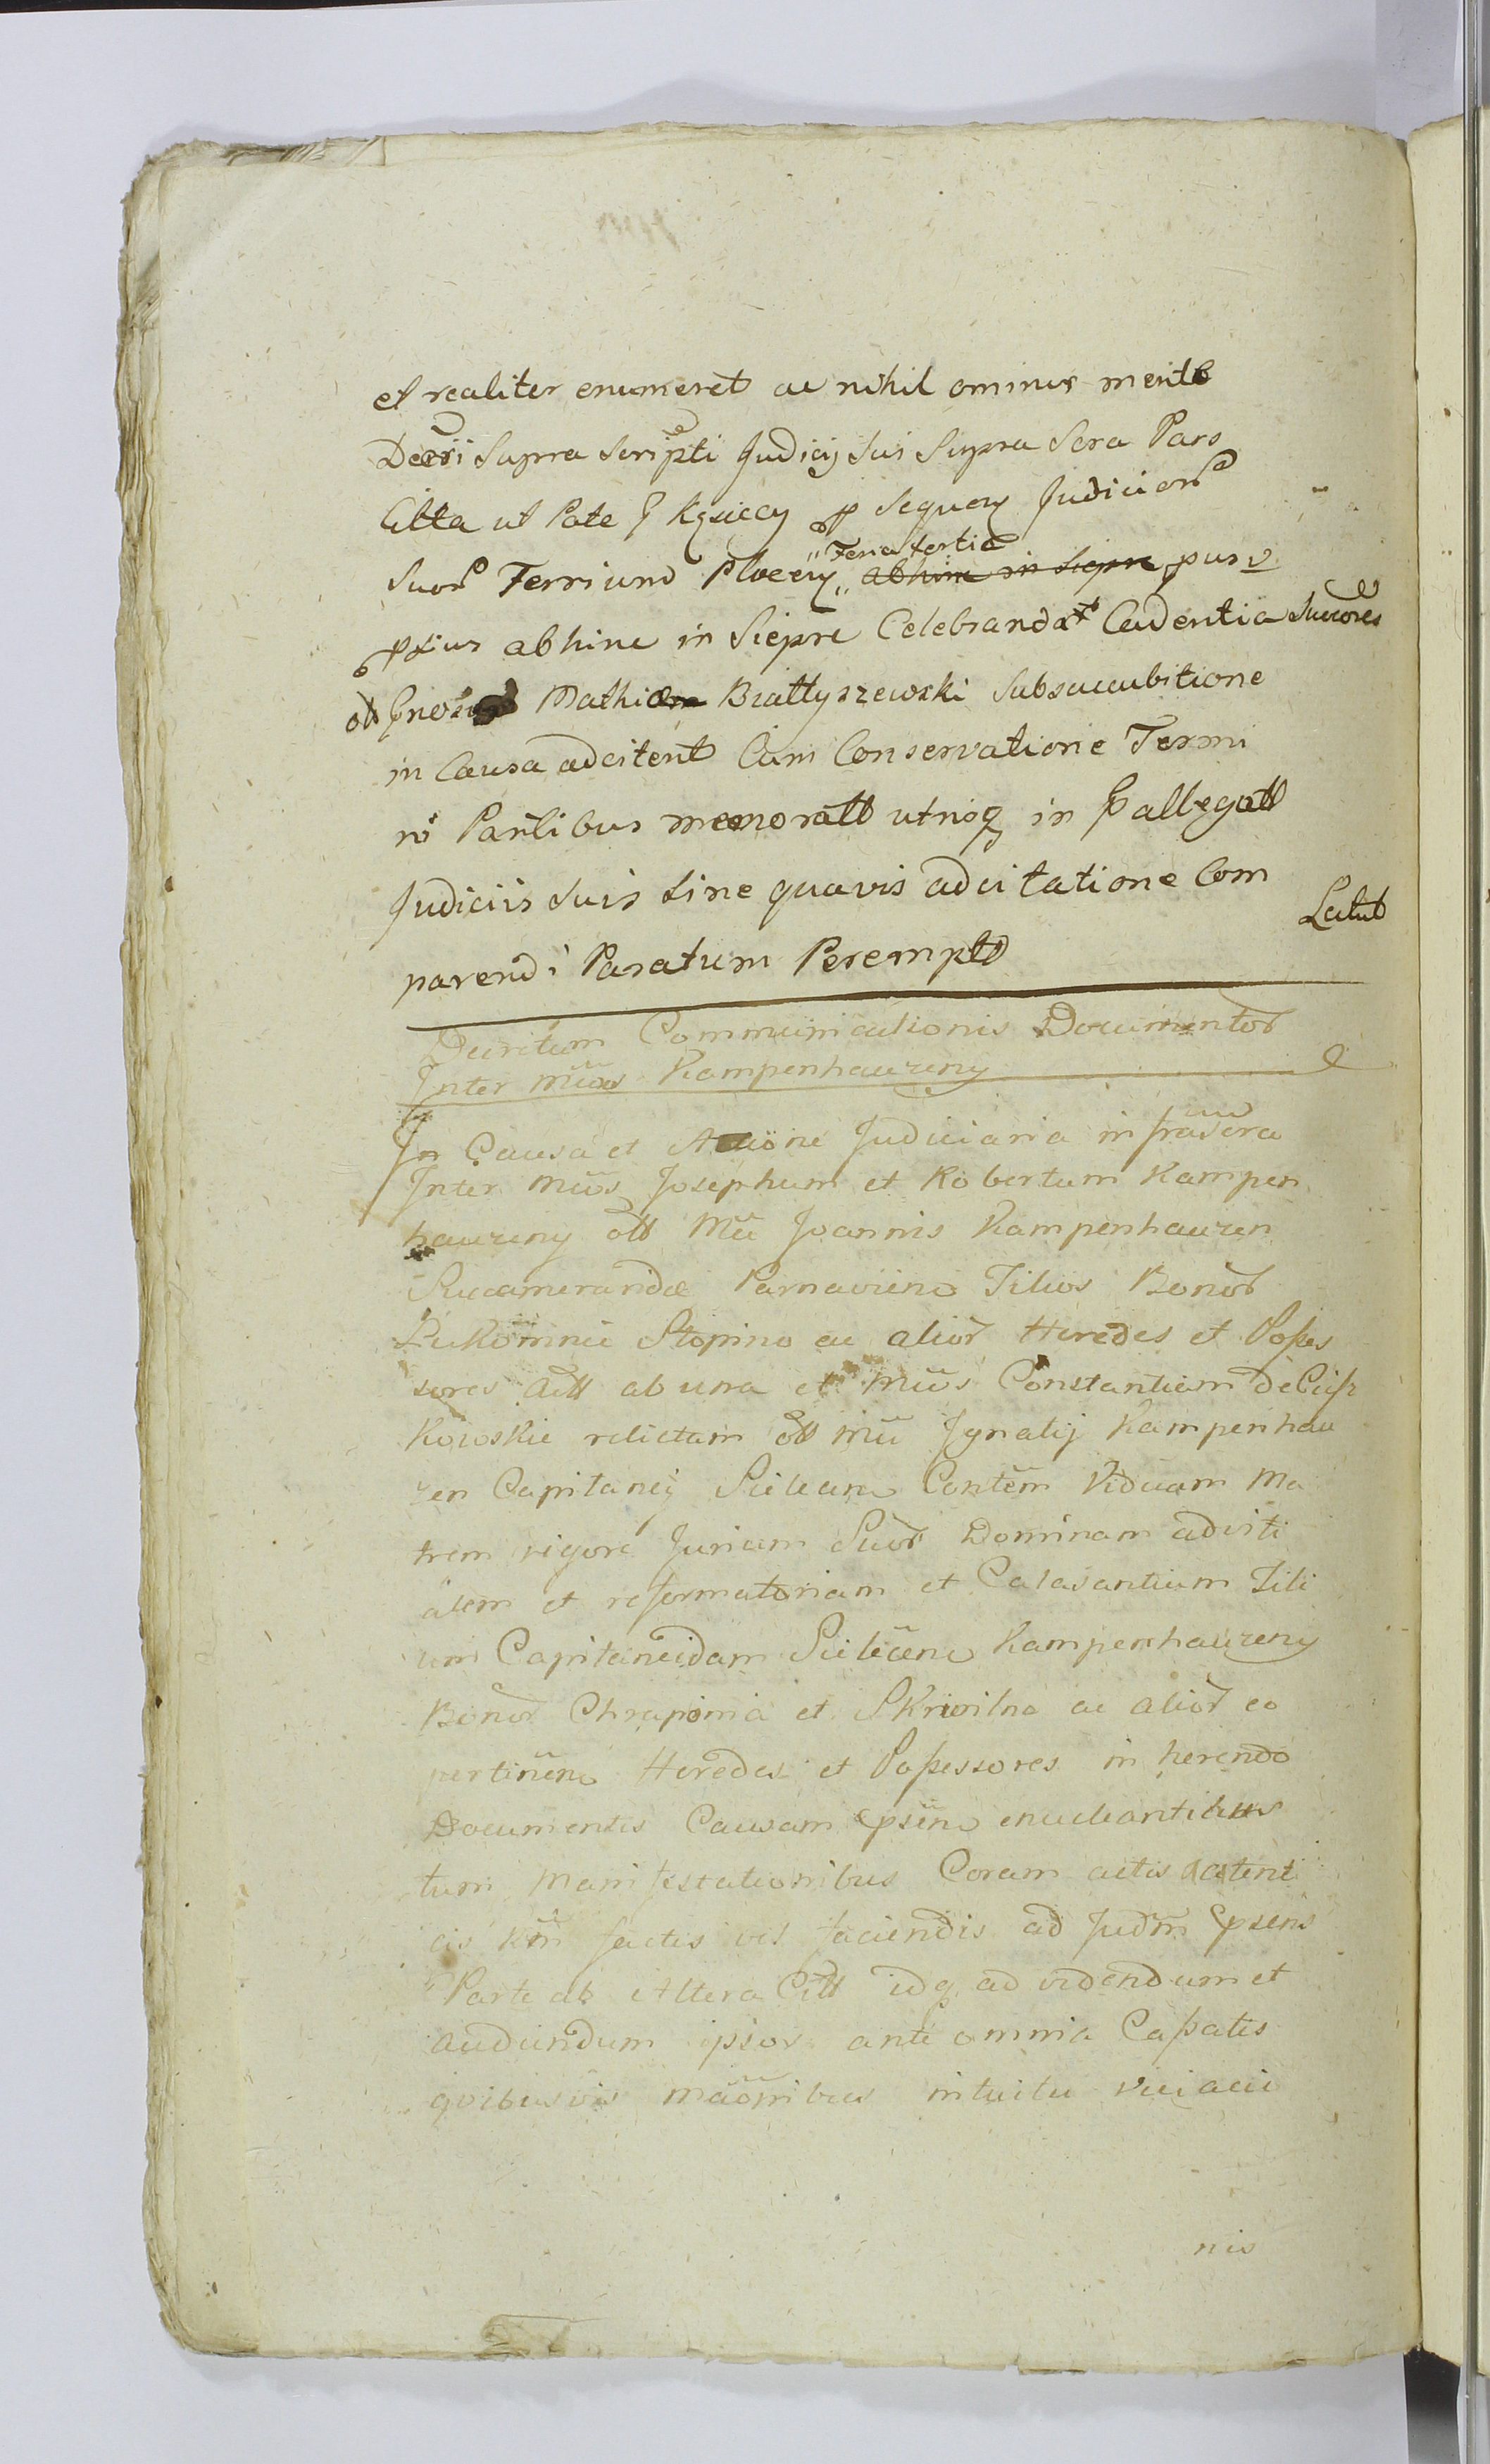 et realiter enumeret ac nihil ominus merito
Decri Supra scripti Judicij sui Supra Scra Pars
Citta ut Pate Ksiecy p sequen Judicior
Suor Terrium Plocen " Feria tertia abhinc in Siepre pur
ptius abhinc in Siepre Celebranda Cadentia Succores
ob Gnosi Mathiæ Biattyszewski Subsuccubitione
in Causa adcitent Cum Conservatione Termi
ni Partibus memoratt utrisq in pallegatt
Judiciis suis sine quavis adcitatione Com
parendi Paratum Perempto Latut
Decretum Communicationis Documentor
Inter Mcos Kampenhauzeny
In Causa et Actione Judiciaria infrascra
Inter Mcos Josephum et Robertum Kampen
hauzeny ott Mci Joannis Kampenhauzen
Succameraridæ Parnavien Filios Bonor
Lukomnie Stopino ac alior Heredes et Posses
sores Actt ab una et Mcos Constantiam de Cisz
kowskie relictam ott Mci Ignatij Kampenhau
zen Capitanei Sielecen Contem Viduam Ma
trem vigore Jurium Suor Dominam adviti
alem et reformatoriam et Calasantium Fili
um Capitaneidam Sielecen Kampenhauzeny
Bonor Chraponia et Skrwilno ac alior eo
pertinen Heredes et Possessores in herendo
Documentis Causam psen enucleantibus
tum Manifestationibus Coram actis autenti
cis factis vel faciendis ad Judm psens
Parte ab Altera Citt idq ad videndum et
audiendum ipsos ante omnia Cassatis
quibusvis maonibus intuitu
nis